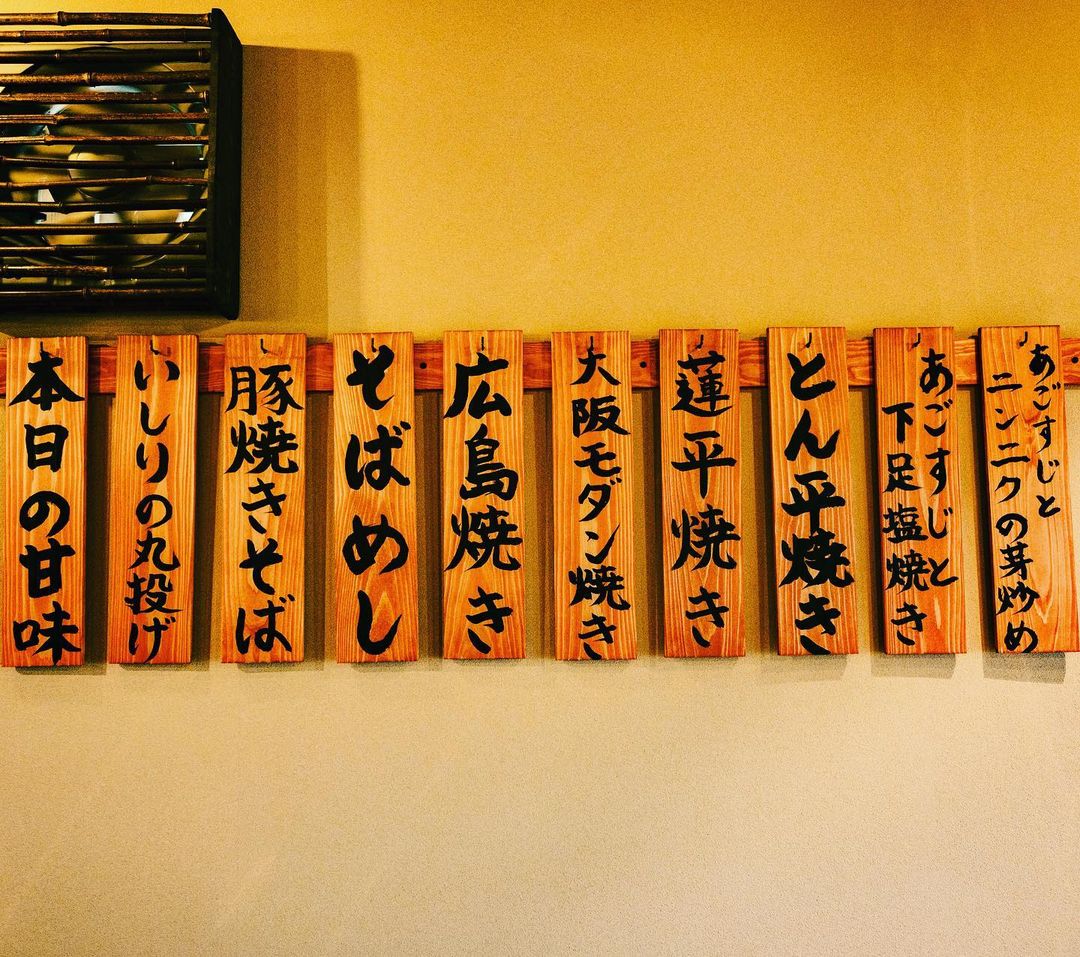 あごすじと
ニンニクの芽炒め
あごすじと
下足塩焼き
とん平焼き
蓮平焼き
大阪モダン焼き
広島焼き
そばめし
豚焼きそば
いしりの丸投げ
本日の甘味